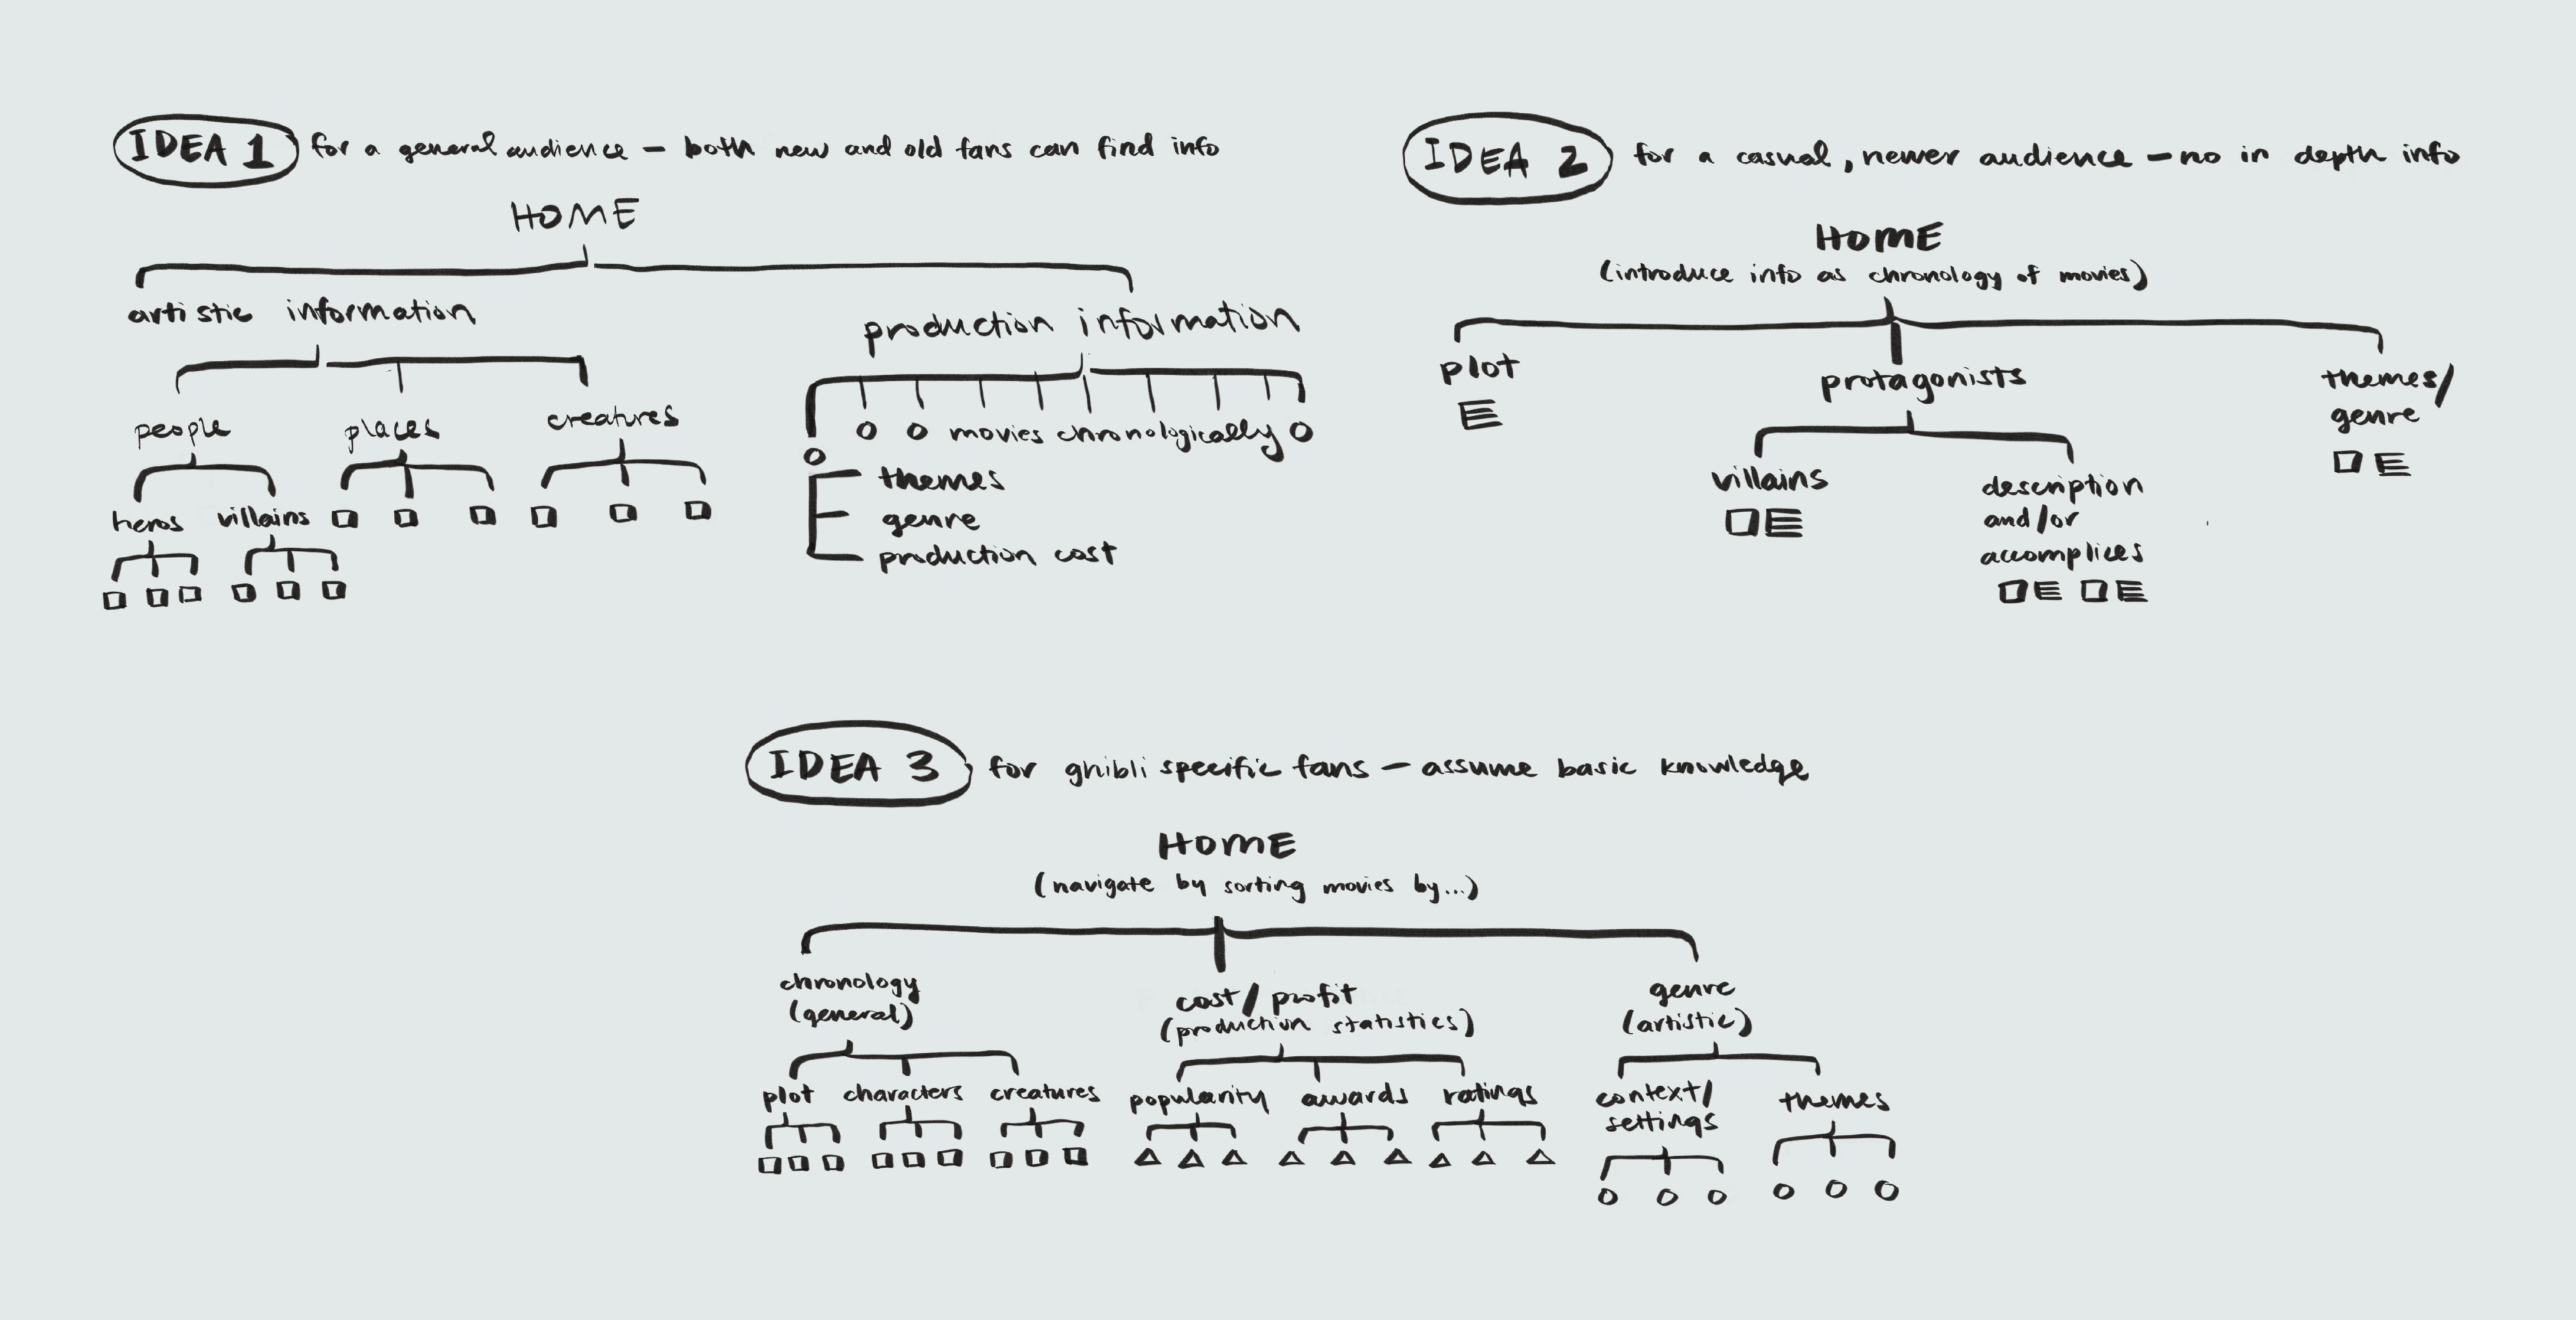 IDEA 1 for a general audience – both new and old fans can find info
HOME
artistic information
production information
people
places
creatures
heros
villains
movies chronologically
themes
genre
production cost
IDEA 2 for a casual, newer audience – no in depth info
HOME
(introduce info as chronology of movies)
plot
protagonists
themes/
genre
villains
description
and/or
accomplices
IDEA 3 for ghibli specific fans – assume basic knowledge
HOME
(navigate by sorting movies by...)
chronology
(general)
cost/profit
(production statistics)
genre
(artistic)
plot
characters
creatures
popularity
awards
ratings
context/
settings
themes